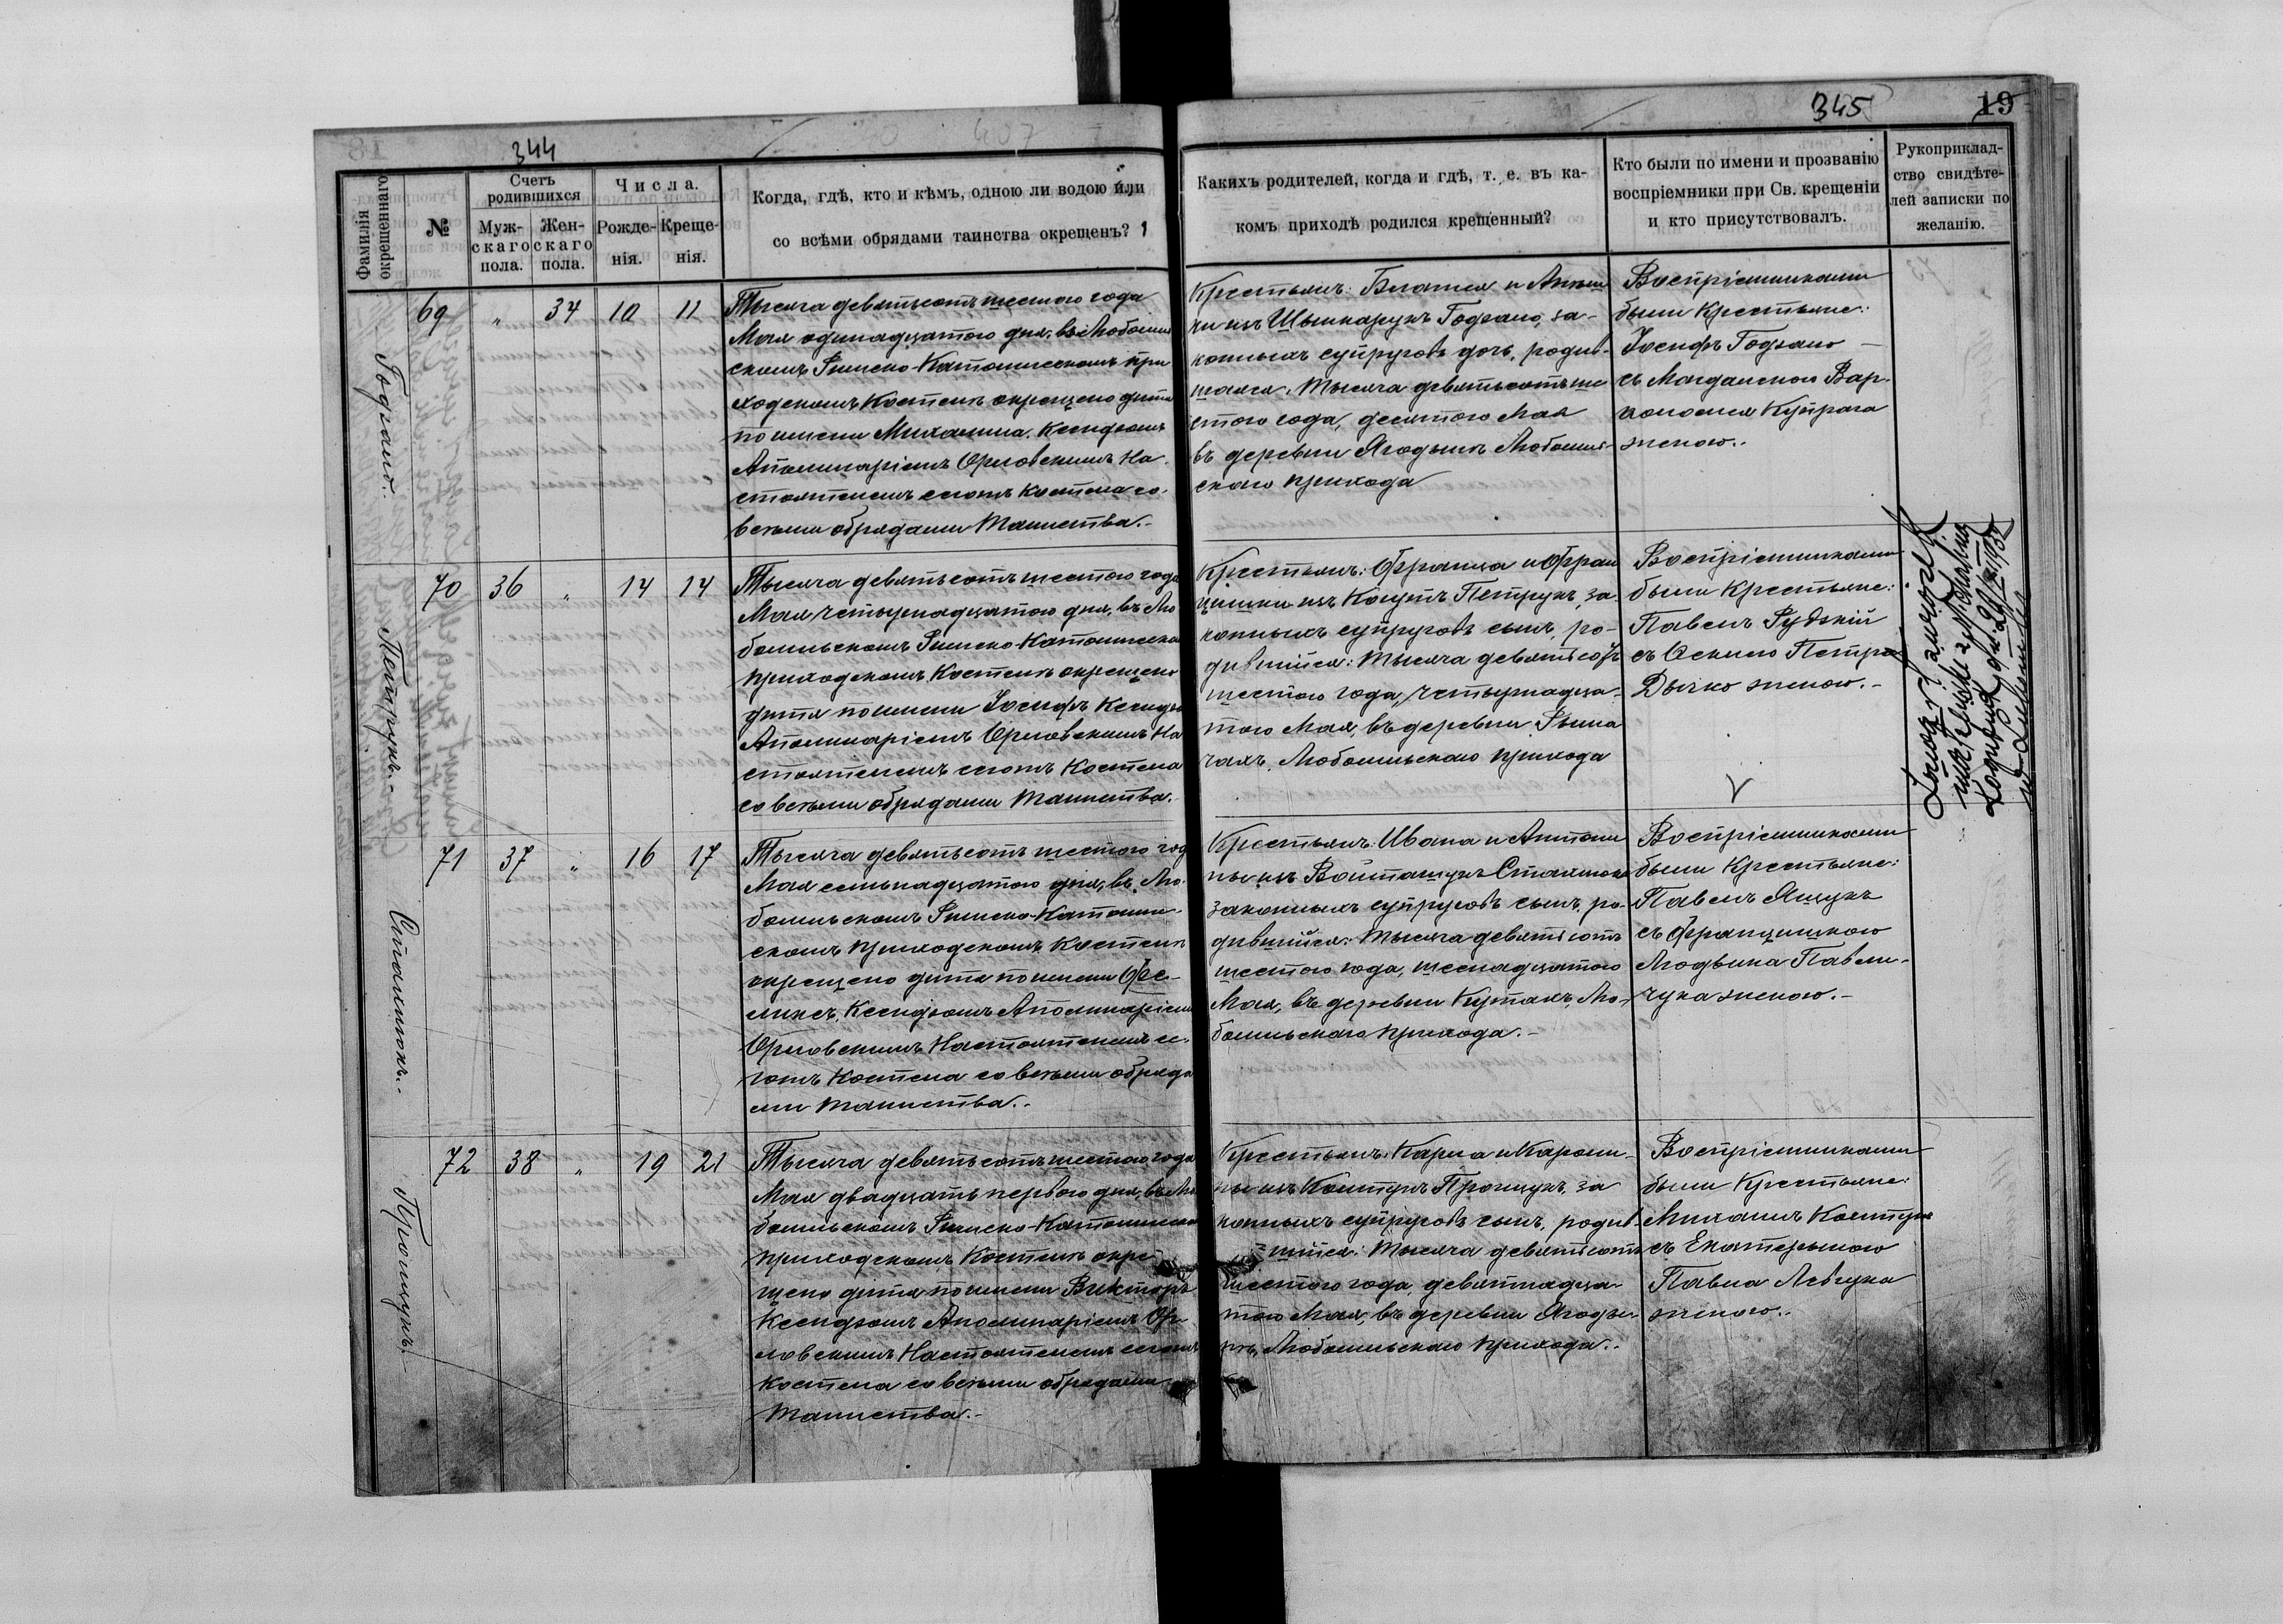 344
Фамилія окрещеннаго
№
Счетъ родившихся
Муж-скаго пола.
Жен-скаго пола.
Числа.
Рожде-нія.
Креще-нія.
Когда, гдѣ, кто и кѣмъ, одною ли водою или
со всѣми обрядами таинства окрещенъ?
345
19
Какихъ родителей, когда и гдѣ, т. е. въ ка-
комъ приходѣ родился крещенный?
Кто были по имени и прозванію
воспріемники при Св. крещеніи
и кто присутствовалъ.
Рукоприклад-
ство свидѣте-
лей записки по
желанію.
69 " 34 10 11
Тысяча девятьсотъ шестого года
Мая одинадцатого дня, въ Любомль
скомъ Римско-Католическомъ при
ходскомъ Костелѣ окрещено дитя
по имени Михалина, Ксендзомъ
Аполинаріемъ Орловскимъ На-
стоятелемъ сего Костела со
всѣми обрядами Таинства.-
Крестьянъ:
законныхъ супруговъ дочь, родив-
шаяся: тысяча девятьсотъ ше
стого года, десятого Мая
въ деревни Ягодынѣ Любомль-
скаго прихода
Воспріемниками
были Крестьяне:
Іосифъ
съ Магдаленою Вар-
женою..
70 36 " 14 14
Петрукъ.-
Тысяча девятьсотъ шестого года
Мая четырнадцатого дня, въ Лю
бомльскомъ Римско-Католическ
приходскомъ Костелѣ окрещено
дитя по имени Іосифъ Ксендз
Аполинаріемъ Орловскимъ На
стоятелемъ сего Костела
со всѣми обрядами Таинства.
Крестьянъ: Франца и Фран
цишки изъ Петрукъ, за-
конныхъ супруговъ сынъ, ро-
дившійся: тысяча девятьсотъ
шестого года, четырнадца-
того Мая, въ деревни Рыма
чахъ, Любомльскаго прихода
Воспріемниками
были Крестьяне:
Павелъ Рудзкій
съ Петра
Дычко женою.-
71 37 " 16 17
Тысяча девятьсотъ шестого год
Мая семьнадцатого дня, въ Лю-
бомльскомъ Римско-Католи-
скомъ приходскомъ Костелѣ
окрещено дитя по имени Фе-
ликсъ, Ксендзомъ Аполинаріемъ
Орловскимъ Настоятелемъ се-
го Костела со всѣми обряда
ми таинства..
Крестьянъ: Ивана и Антони
ны изъ
законныхъ супруговъ сынъ, ро-
дившійся: тысяча девятьсотъ
шестого года, шеснадцатого
Мая, въ деревни Кутахъ, Лю-
бомльскаго прихода.-
Воспріемниками
были Крестьяне:
Павелъ Ящукъ
съ Францишкою
Людвика Павлю-
чука женою.-
72 38 " 19 21
Тысяча девятьсотъ шестого года
Мая двадцать перваго дня, въ Лю
бомльскомъ Римско-Католическ
приходскомъ Костелѣ окре-
щено дитя по имени Викторъ
Ксендзомъ Аполинаріемъ Ор-
ловскимъ Настоятелемъ сего
Костела со всѣми обрядами
Таинства.-
Крестьянъ: Карла и Кароли-
ны изъ за
конныхъ супруговъ сынъ, родив-
шійся: тысяча девятьсотъ
шестого года, девятнадца-
того Мая, въ деревни Ягоды-
нѣ, Любомльскаго прихода..
Воспріемниками
были Крестьяне:
Михаилъ
съ Екатериною
Павла Левчука
женою..